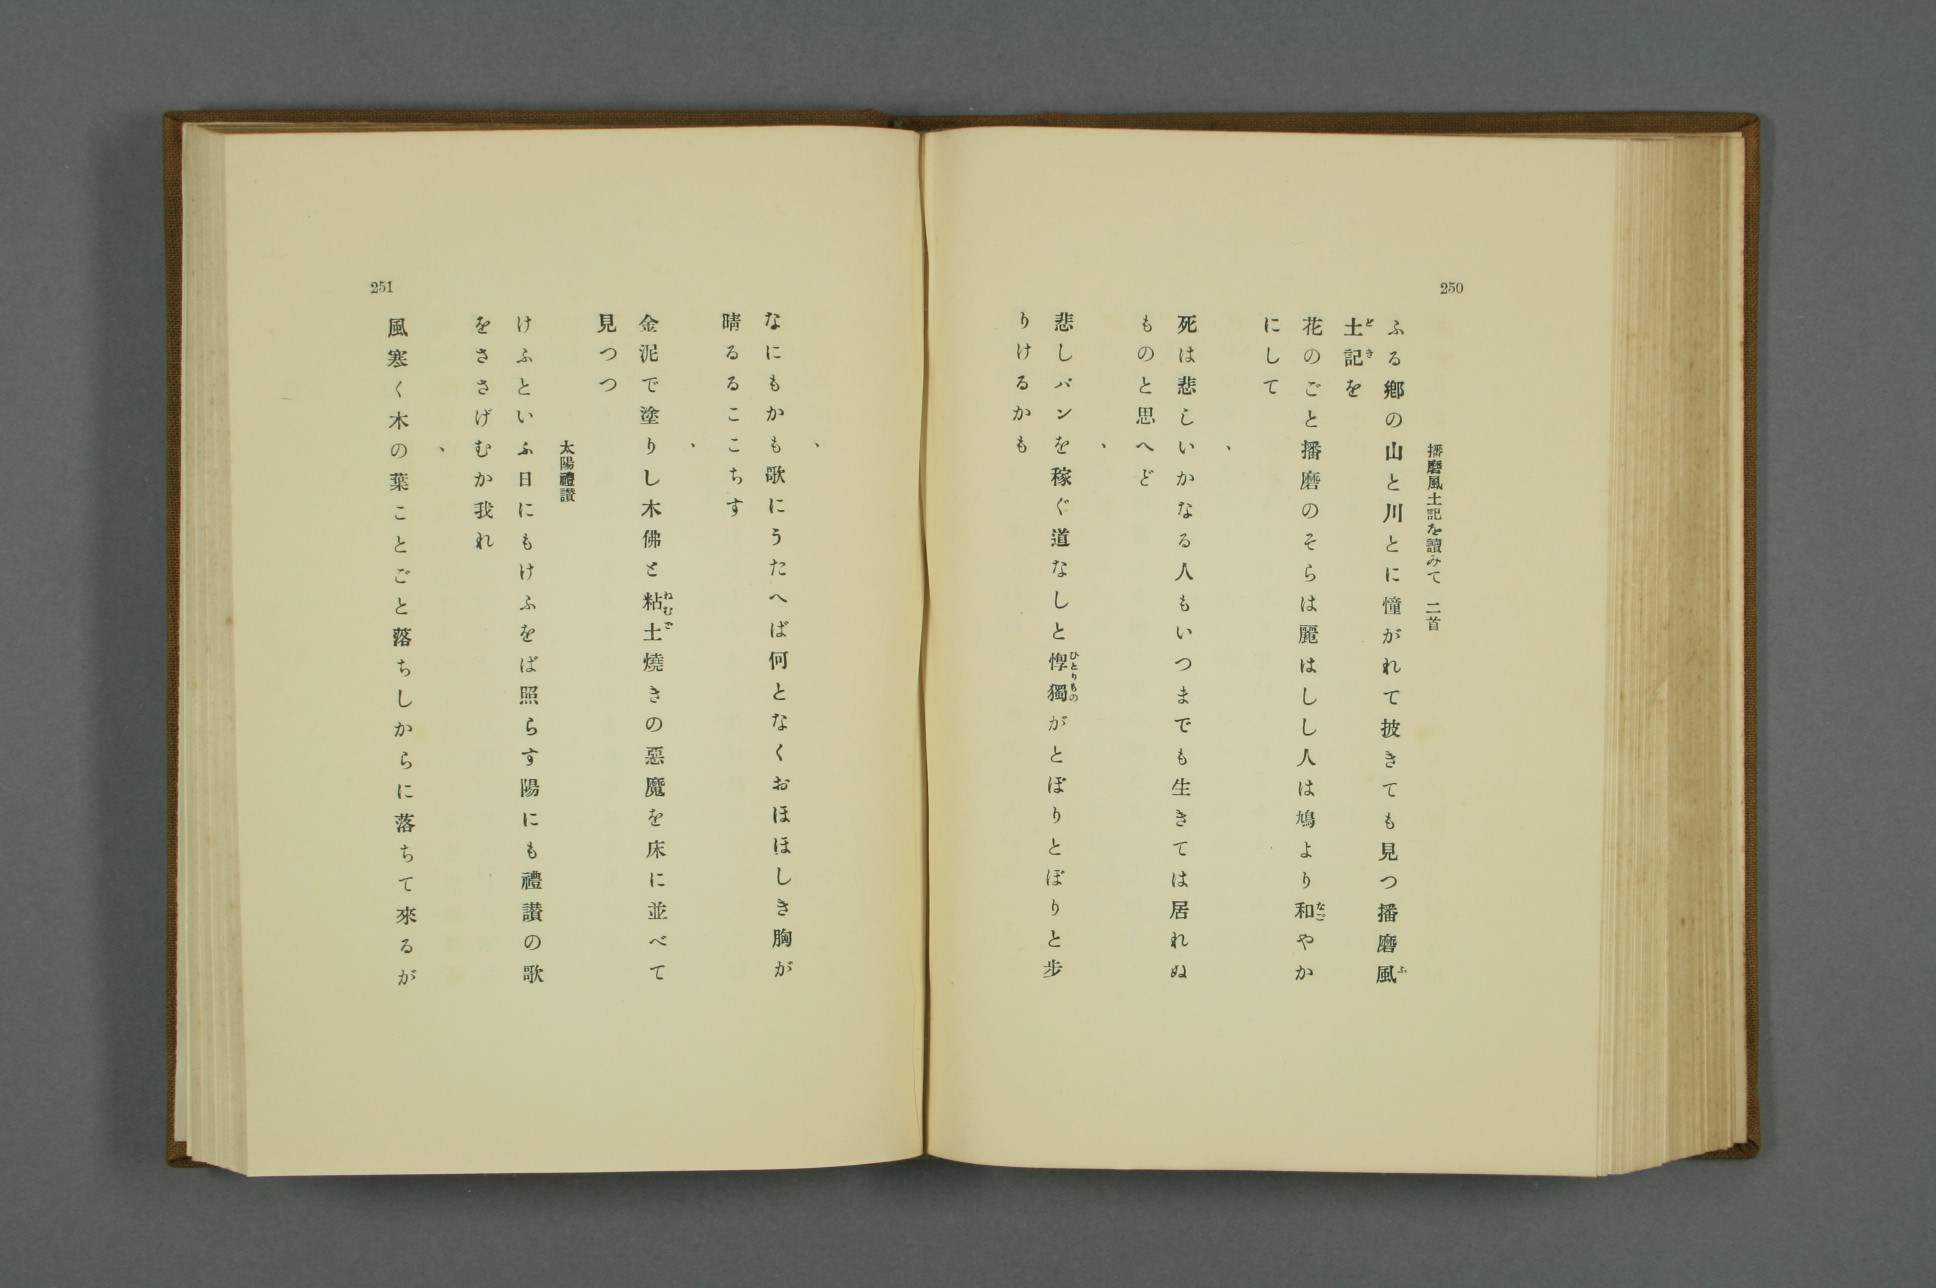 250
播磨風土記を讀みて 二首
ふる鄕の山と川とに憧がれて披きても見つ播磨風
土記を
花のごと播磨のそらは麗はしし人は鳩より和やか
にして
、
死は悲しいかなる人もいつまでも生きては居れぬ
ものと思へど
、
悲しパンを稼ぐ道なしと惸獨がとぼりとぼりと步
りけるかも
251
、
なにもかも歌にうたへば何となくおほほしき胸が
晴るるここちす
、
金泥で塗りし木佛と粘土燒きの惡魔を床に並べて
見つつ
太陽禮讃
けふといふ日にもけふをば照らす陽にも禮讃の歌
をささげむか我れ
、
風寒く木の葉ことごと落ちしからに落ちて來るが